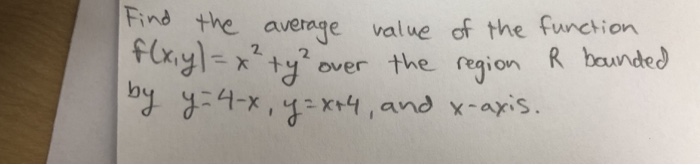 Find the average value of the function
f(x,y)=x²+y² over the region R bounded
by y=4-x, y=x+4, and x-axis.